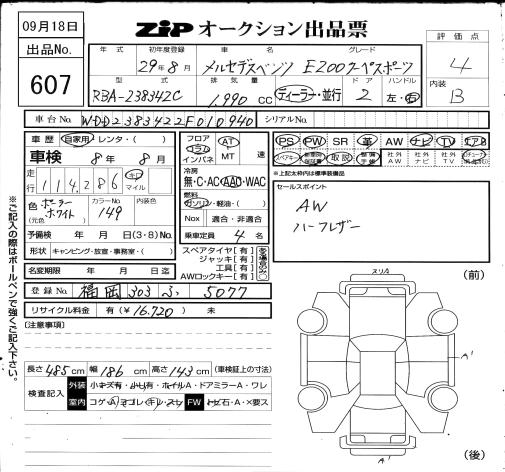 09月18日
ZIP オークション出品票
出品No.
607
年 式 初年度登録 車 名 グレード
29年8月 メルセデスベンツ E200クーペスポーツ
型 式 排 気 量 ド ア ハンドル
RBA-238342C 1,990 CC ディーラー・並行 2 左・右
評 価 点
4
内装
B
車 台 No. WDD2383422F010940 シリアルNo.
車 歴 自家用・レンタ・( )
車検 8年 8月
走行 114,286 キロ マイル
色 ポーラーホワイト カラーNo. 149 内装色
(元色)
予備検 年 月 日(3・8)No.
形状 キャンピング・放宣・事務室・( )
名変期限 年 月 日迄
フロア コラム インパネ AT MT 速
冷房
無・C・AC・AAC・WAC
燃料
ガソリン・軽油・( )
Nox 適合・非適合
乗車定員 4 名
スペアタイヤ[有]
ジャッキ[有]
工具[有]
AWロックキー[有]
PS PW SR 革 AW ナビ TV エアB
スペアキー 取説 社外AW 社外ナビ 社外TV
※上記太枠内は標準装備品
セールスポイント
AW
ハーフレザー
登 録 No. 福岡 303 ふ 5077
リサイクル料金 有 (¥16,720) 未
[注意事項]
長さ 485cm 幅 186cm 高さ 143cm (車検証上の寸法)
検査記入 外装 小キズ有・小凹有・ホイルA・ドアミラーA・ワレ
室内 コゲ・A・ヨゴレ・キレ・スレ FW トビ石・A・×要ス
※ご記入の際はボールペンで強くご記入下さい。
(前)
スリA
A'
A'
(後)